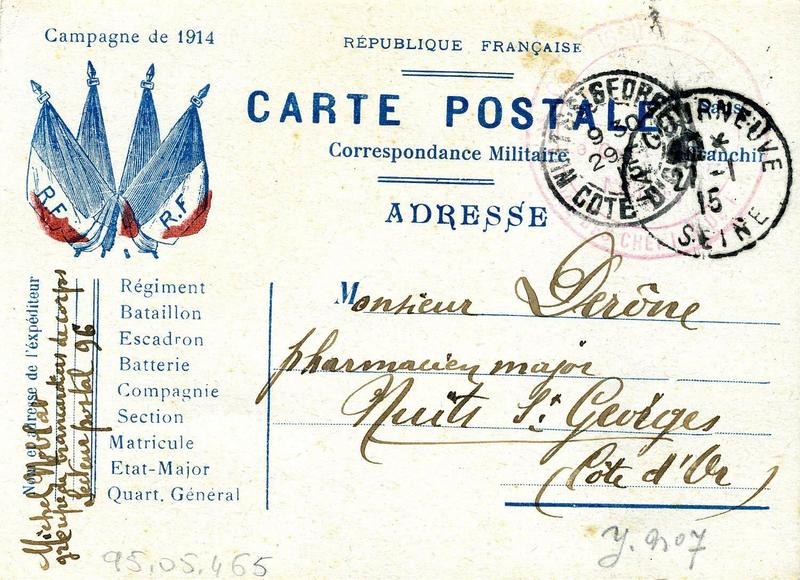 Campagne de 1914
RÉPUBLIQUE FRANÇAISE
CARTE POSTALE
Correspondance Militaire
Franchir
ADRESSE
R.F
R.F
COURNEUVE
21-1
15
SEINE
COTE D'
Nom et adresse de l'expéditeur
Michel
groupe de brancardiers de corps
secteur postal 96
Régiment
Bataillon
Escadron
Batterie
Compagnie
Section
Matricule
Etat-Major
Quart. Général
Monsieur Derône
pharmacien major
Nuits St Georges
(Côte d'Or)
95.05.465